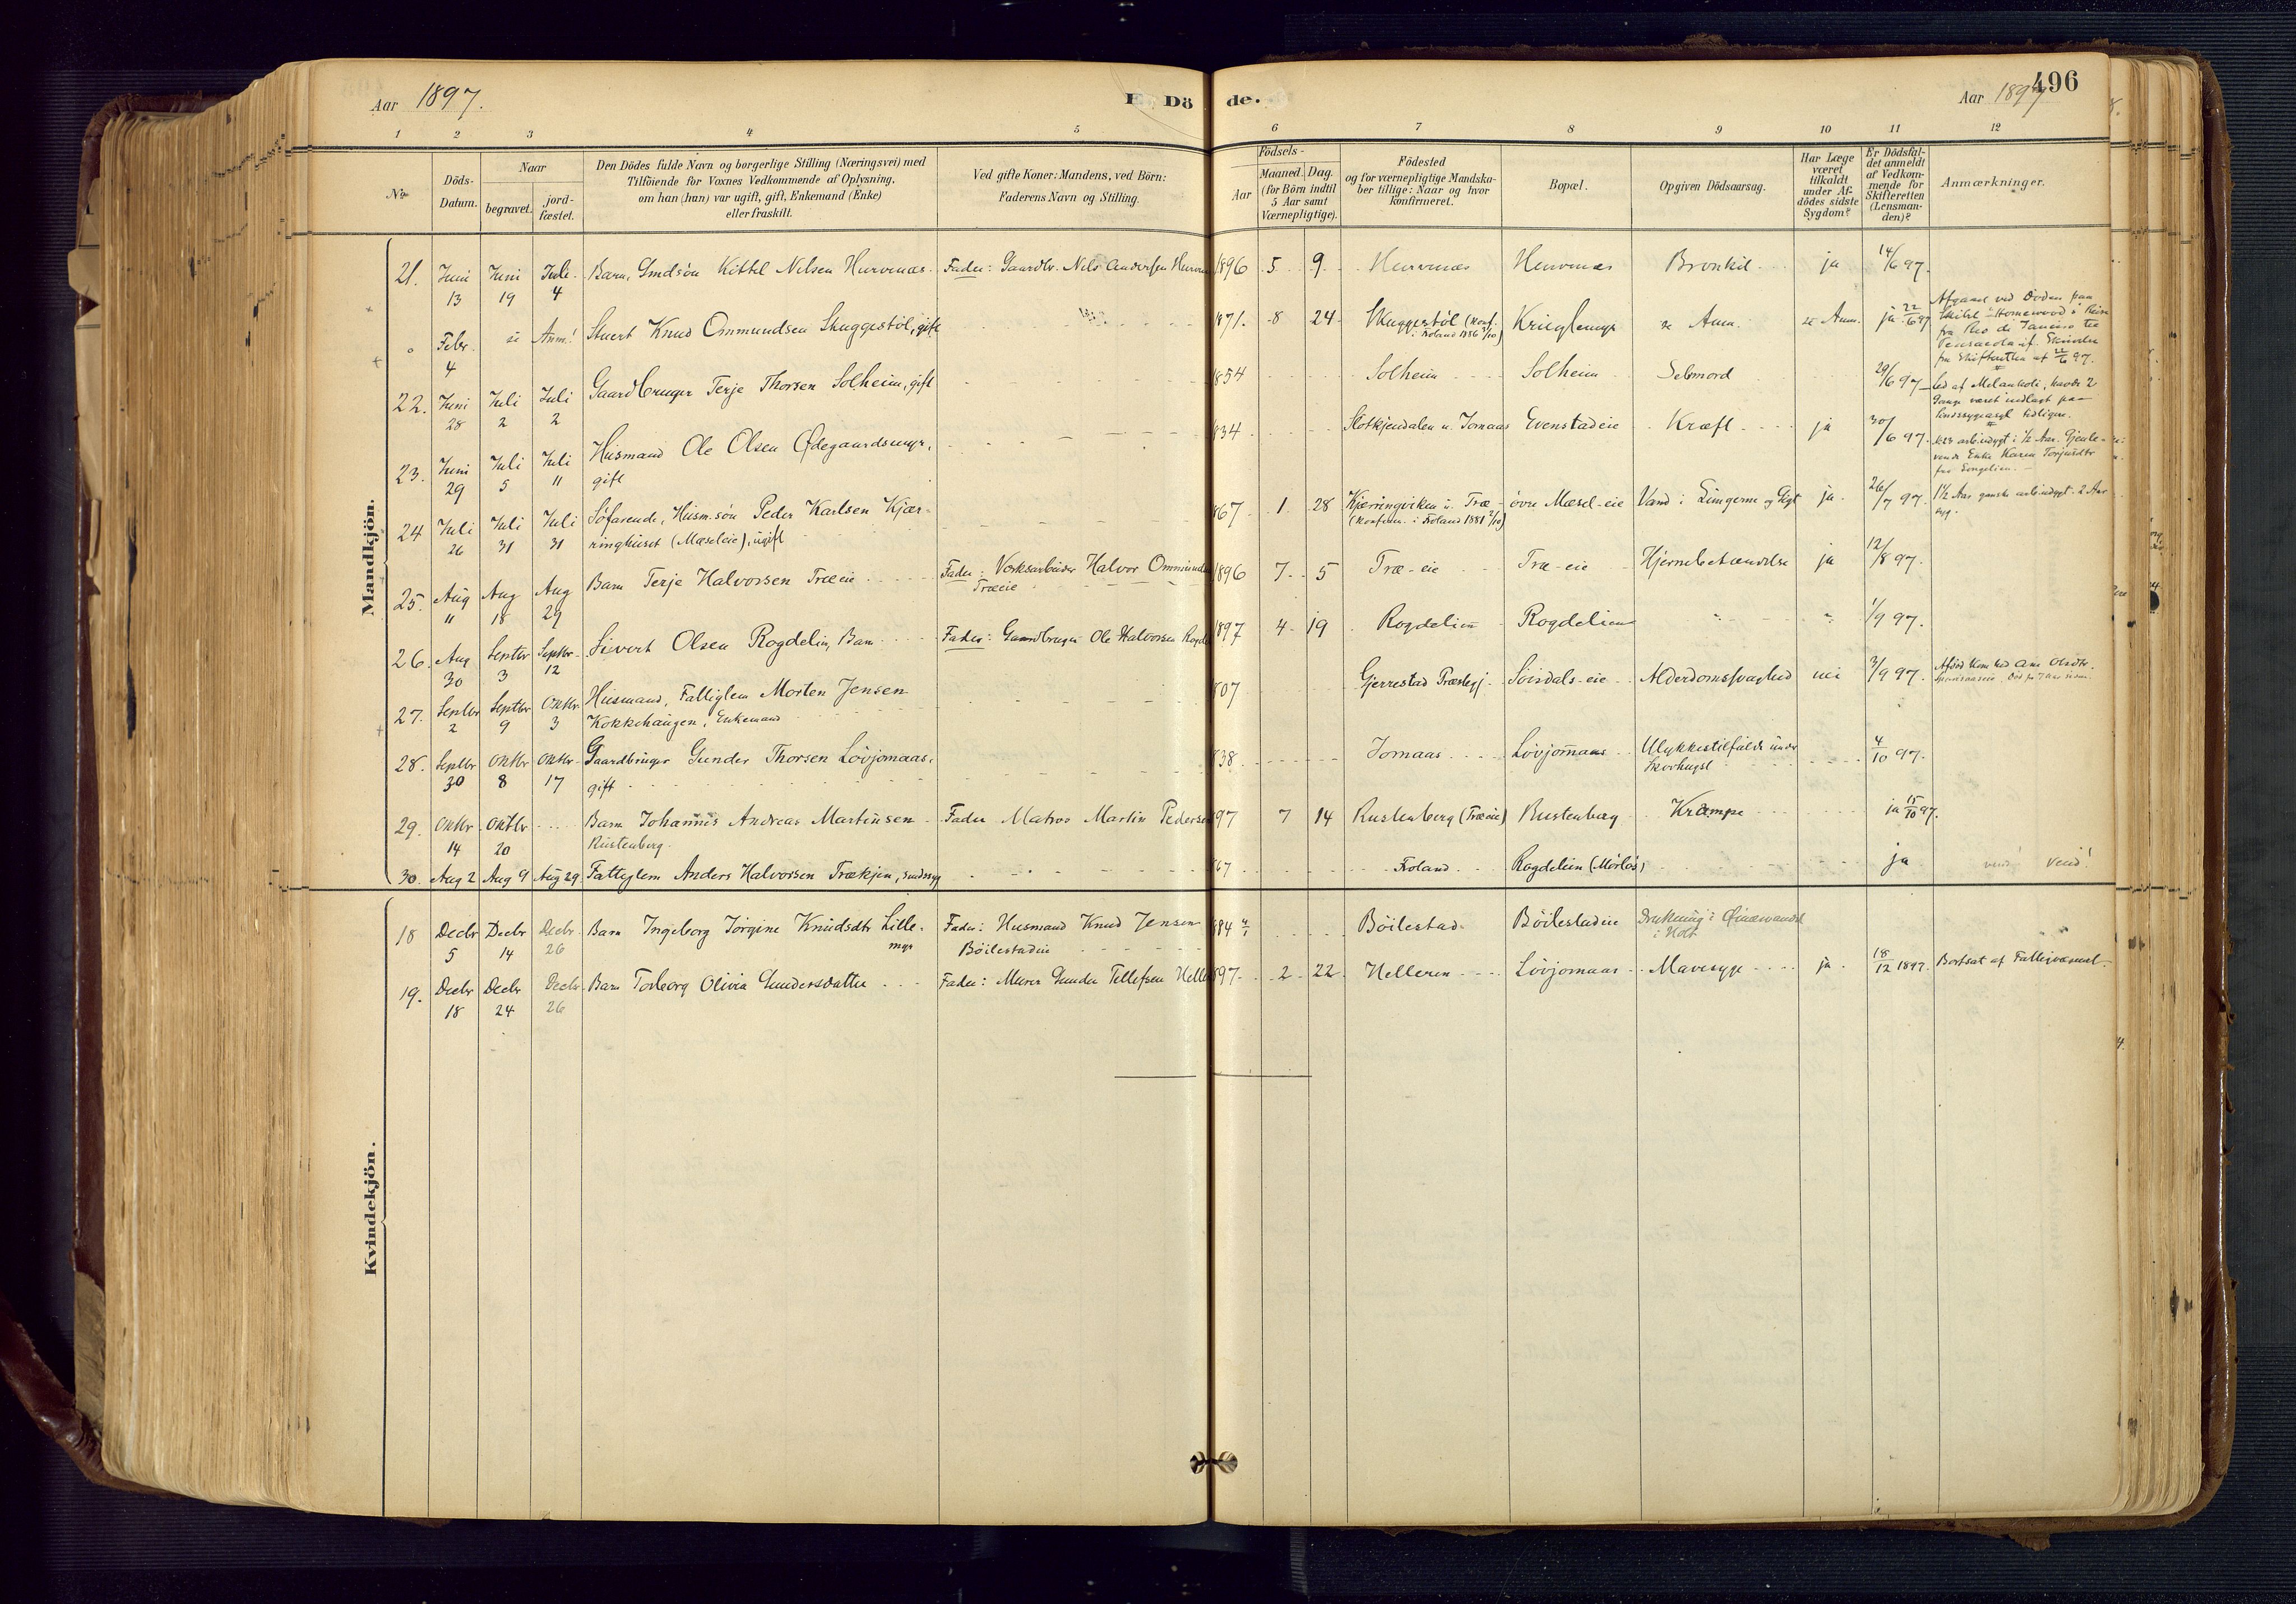 Aar 1897.
E. Dö
de.
Aar 1897
496
1 2 3 4 5 6 7 8 9 10 11 12
No
Döds-Datum.
Naar
begravet.
jord-fæstet.
Den Dödes fulde Navn og borgerlige Stilling (Næringsvei) med
Tilföiende for Voxnes Vedkommende af Oplysning.
om han (hun) var ugift, gift, Enkemand (Enke)
eller fraskilt.
Ved gifte Koner: Mandens, ved Börn:
Faderens Navn og Stilling.
Födsels-
Aar
Maaned. Dag.
(for Börn indtil
5 Aar samt
Værnepligtige).
Födested
og for værnepligtige Mandska-
ber tillige: Naar og hvor
konfirmeret.
Bopæl.
Opgiven Dödsaarsag.
Har Læge
været
tilkaldt
under Af-
dödes sidste
Sygdom?
Er Dödsfal-
det anmeldt
af Vedkom-
mende for
Skifteretten
(Lensman-
den)?
Anmærkninger.
Mandkjön.
21. Juni 13 Juni 19 Juli 4 Barn, Kittel Nilsen Hurvenæs. Fader: Gaardbr. Nils Andersen 1896 5 9 Hurvenæs Hurvenæs Bronkit ja 14/6 97.
Febr. 4 se Anm! Stuert Knud Ommundsen Skuggestöl, gift 1871. 8 24 Skuggestöl (Konf. i Froland 1886 3/10) se Anm. se Anm. ja 22/6 97
Afgaaet ved Döden paa
Skibet "Homewood" i Reise
fra Rio de Janeiro til
Pensacola
fra Skifteretten af 22/6 97.
22. Juni 28 Juli 2 Juli 2 Gaardbruger Terje Thorsen Solheim, gift 1854 Solheim Solheim Selvmord 29/6 97
Led af Melankoli, havde 2
Gange været indlagt paa
Sindssygeasyl tidligere.
23. Juni 29 Juli 5 Juli 11 Husmand Ole Olsen Ødegaardsmyr, gift 834 Slotkjendalen u. Jomaas Evenstadeie Kræft ja 30/6 97.
i 1/2 Aar. Gjenle-
vende Enke Karen
24 Juli 26 Juli 31 Juli 31 Söfarende, Husm.sön Peder Karlsen Kjær-
ringhuset (Mæseleie), ugift 867 1 28 Kjærringviken u. Træ
(Konfirm. i Froland 1881 2/10) övre Mæsel-eie Vand i Lungerne og Gigt ja 26/7 97.
1 1/2 Aar ganske 2 Aar
syg.
25. Aug 11 Aug 18 Aug 29 Barn Terje Halvorsen Træeie Fader: Værksarbeider Halvor Ommunds
Træeie 1896 7 5 Træ-eie Træ-eie Hjernebetændelse ja 12/8 97.
26. Aug 30 Septbr 3 Septbr 12 Sivert Olsen Rogdelien, Barn Fader: Gaardbruger Ole Halvorsen Rogde 1897 4 19 Rogdelien Rogdelien " " 1/9 97.
27. Septbr 2 Septbr 9 Oktbr 3 Husmand, Fattiglem Morten Jensen
Kokkehaugen, Enkemand 807 Gjerrestad Præstegj. Soisdals-eie Alderdomssvaghed nei 3/9 97.
28. Septbr 30 Oktbr 8 Oktbr 17 Gaardbruger Gunder Thorsen Lövjomaas,
gift 838 Jomaas Lövjomaas Ulykkestilfælde under
Skovhugst 4/10 97.
29. Oktbr 14 Oktbr 20 Barn Johannes Andreas Martinsen
Rustenberg Fader Matros Martin Pedersen 97 7 14 Rustenberg (Træeie) Rustenberg Krampe ja 15/10 97.
30. Aug 2 Aug 9 Aug 29. Fattiglem Anders Halvorsen Trækjen, sindssyg 67 Froland Rogdelien ja vend! vend!
Kvindekjön.
18 Decbr 5 Decbr 14 Decbr 26 Barn Ingeborg Jörgine Knudsdtr Lille-
myr Fader: Husmand Knud Jensen
Böilestadeie 884 4/1 Böilestad Böilestadeie Drukning i
i Holt
19. Decbr 18 Decbr 24 Decbr 26 Barn Torborg Olivia Gundersdatter Fader: Murer Gunder Tellefsen Helle 897 2 22 Helleren Lövjomaas Mavesyge ja 18/12 1897. Bortsat af Fattigvæsenet.